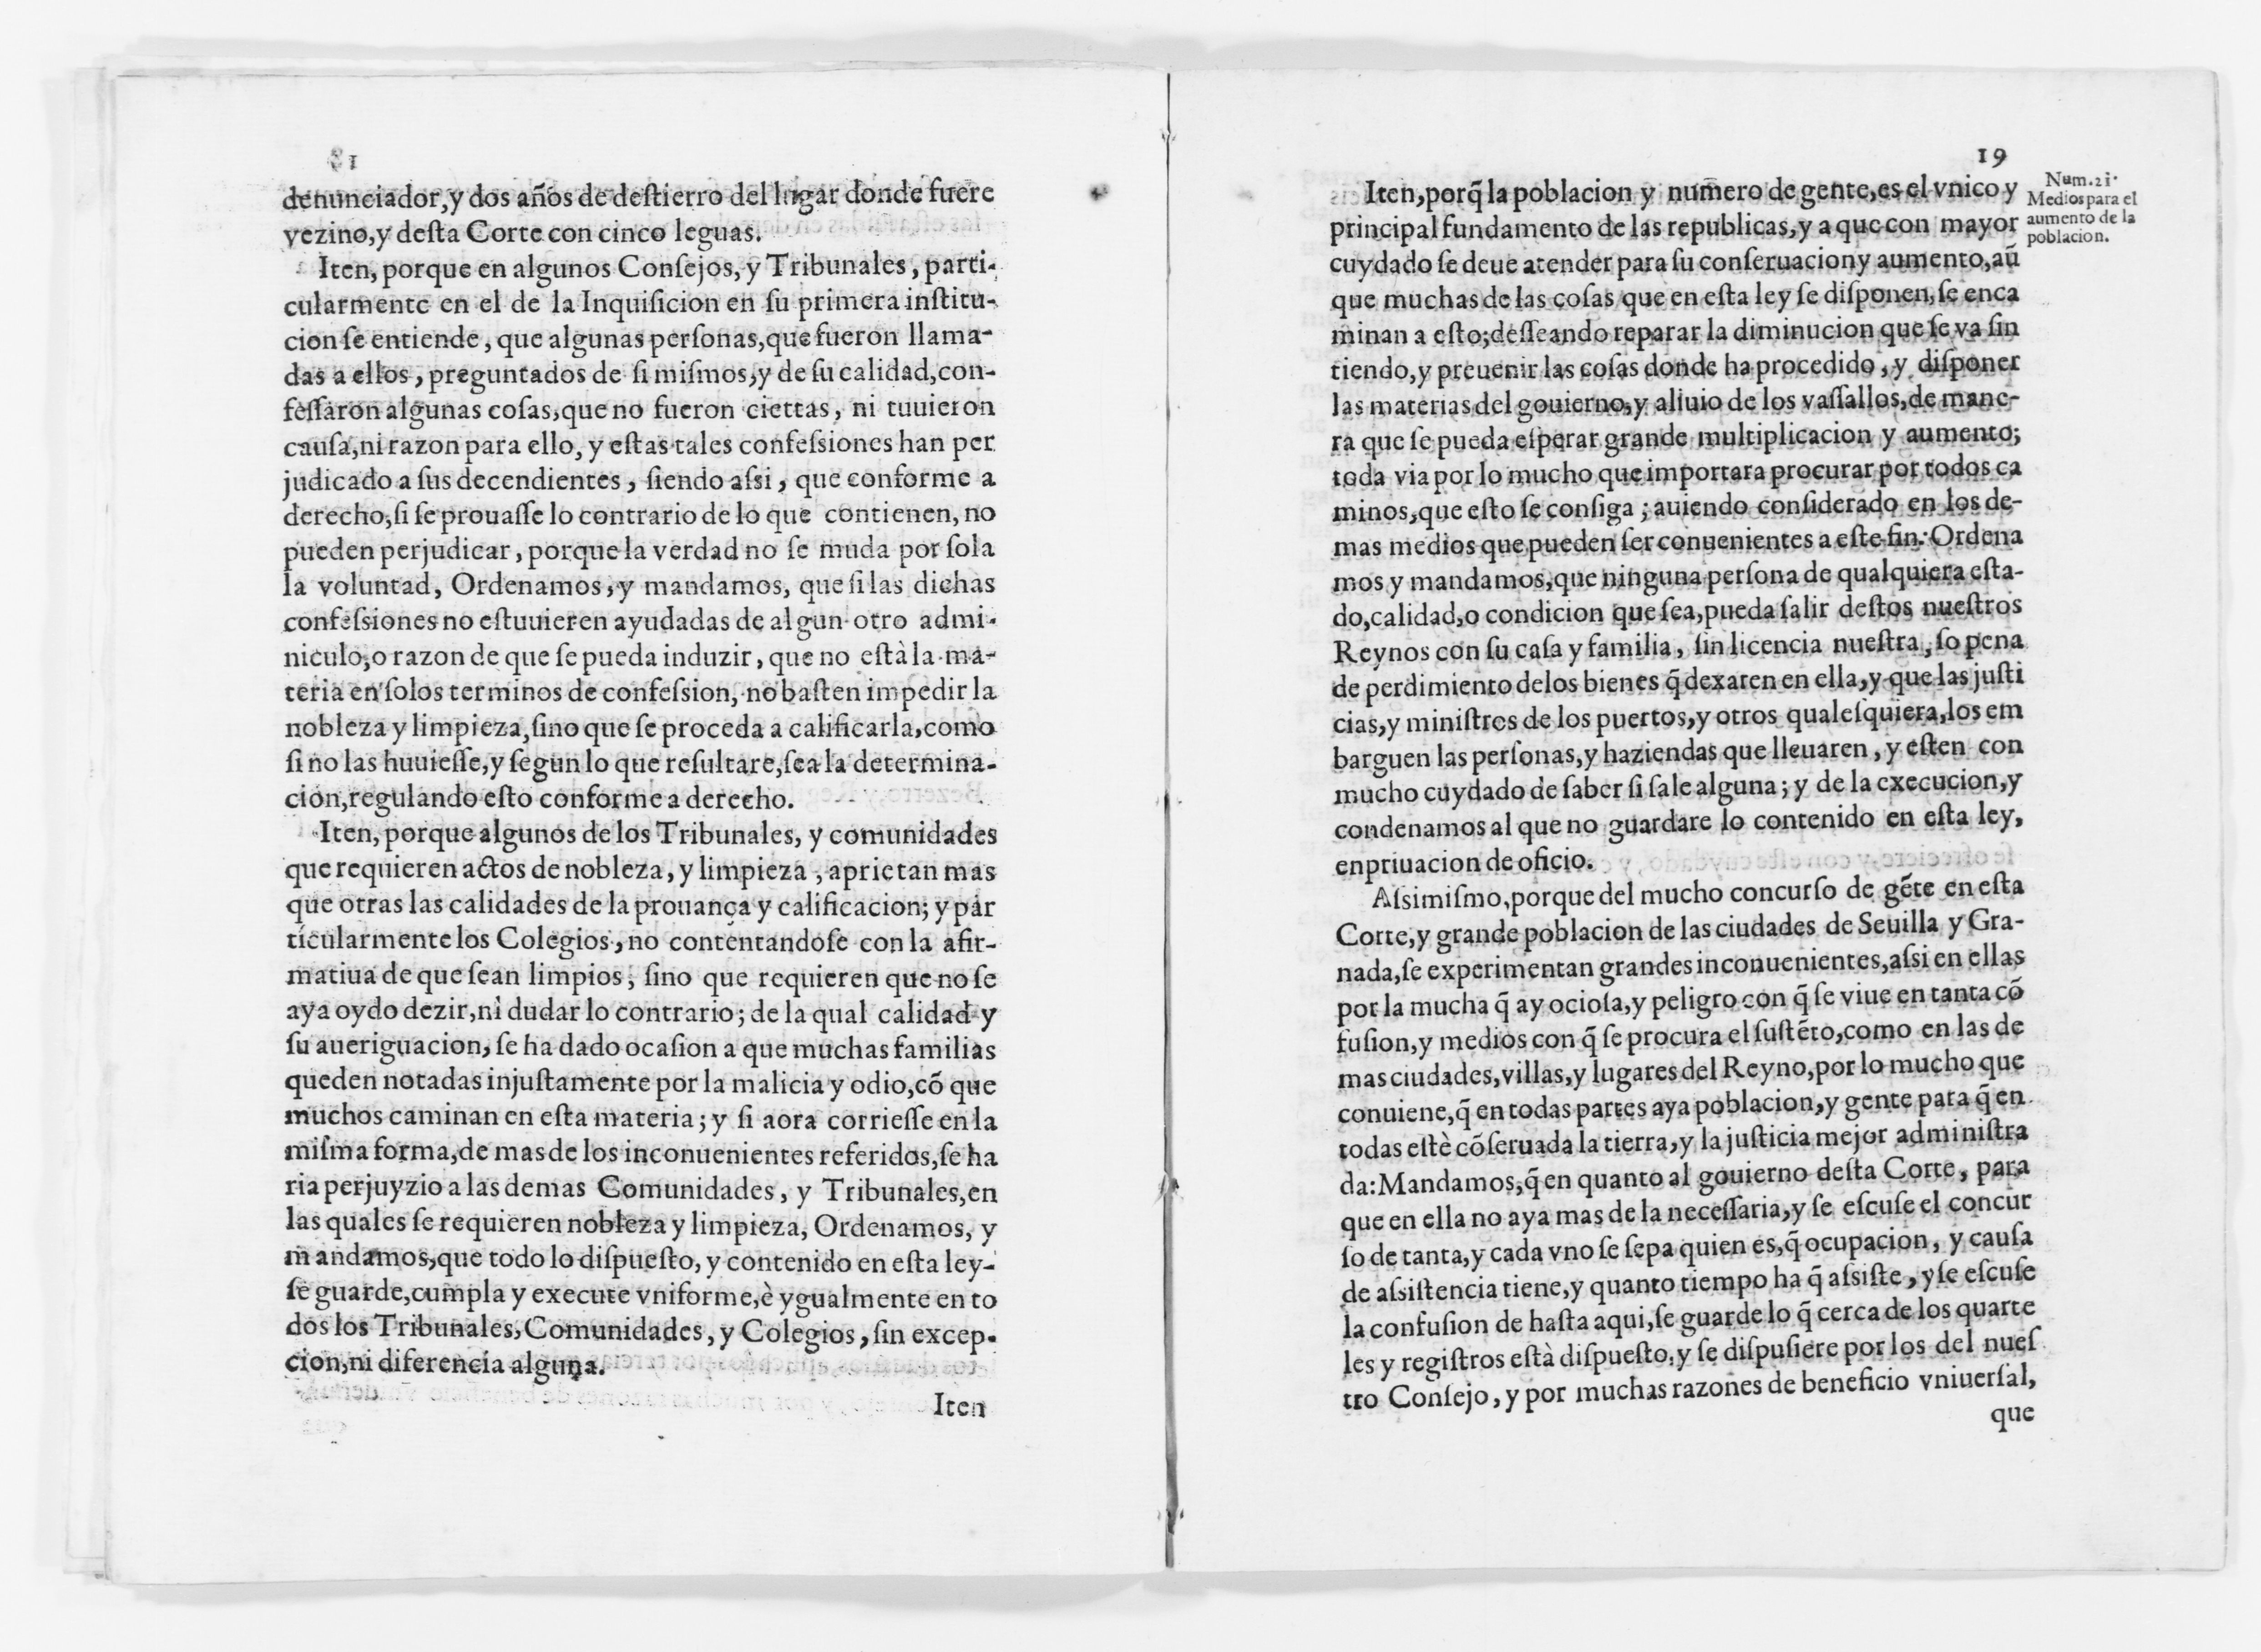 18
denunciador,y dos años de deſtierro del lugar donde fuere
vezino,y deſta Corte con cinco leguas.
Iten, porque en algunos Conſejos, y Tribunales, parti-
cularmente en el de la Inquiſicion en ſu primera inſtitu-
cion ſe entiende, que algunas perſonas,que fueron llama-
das a ellos, preguntados de ſi miſmos,y de ſu calidad,con-
feſſaron algunas coſas,que no fueron ciertas, ni tuuieron
cauſa,ni razon para ello, y eſtas tales confeſsiones han per
judicado a ſus decendientes, ſiendo aſsi, que conforme a
derecho,ſi ſe prouaſſe lo contrario de lo que contienen, no
pueden perjudicar, porque la verdad no ſe muda por ſola
la voluntad, Ordenamos,y mandamos, que ſi las dichas
confeſsiones no eſtuuieren ayudadas de algun otro admi-
niculo,o razon de que ſe pueda induzir, que no eſtà la ma-
teria en ſolos terminos de confeſsion, no baſten impedir la
nobleza y limpieza,ſino que ſe proceda a calificarla,como
ſi no las huuieſſe,y ſegun lo que reſultare,ſea la determina-
cion,regulando eſto conforme a derecho.
Iten, porque algunos de los Tribunales, y comunidades
que requieren actos de nobleza, y limpieza, aprietan mas
que otras las calidades de la prouança y calificacion; y par
ticularmente los Colegios, no contentandoſe con la afir-
matiua de que ſean limpios, ſino que requieren que no ſe
aya oydo dezir,ni dudar lo contrario; de la qual calidad y
ſu aueriguacion, ſe ha dado ocaſion a que muchas familias
queden notadas injuſtamente por la malicia y odio,cõ que
muchos caminan en eſta materia; y ſi aora corrieſſe en la
miſma forma,de mas de los inconuenientes referidos,ſe ha
ria perjuyzio a las demas Comunidades, y Tribunales,en
las quales ſe requieren nobleza y limpieza, Ordenamos, y
mandamos,que todo lo diſpueſto, y contenido en eſta ley-
ſe guarde,cumpla y execute vniforme,è ygualmente en to
dos los Tribunales,Comunidades, y Colegios, ſin excep-
cion,ni diferencia alguna.
Iten
19
Num.21.
Medios para el
aumento de la
poblacion.
Iten,porq̃ la poblacion y numero de gente,es el vnico y
principal fundamento de las republicas,y a que con mayor
cuydado ſe deue atender para ſu conſeruacion y aumento,aũ
que muchas de las coſas que en eſta ley ſe diſponen,ſe enca
minan a eſto;deſſeando reparar la diminucion que ſe va ſin
tiendo,y preuenir las coſas donde ha procedido, y diſponer
las materias del gouierno,y aliuio de los vaſſallos,de mane-
ra que ſe pueda eſperar grande multiplicacion y aumento;
toda via por lo mucho que importara procurar por todos ca
minos,que eſto ſe conſiga; auiendo conſiderado en los de-
mas medios que pueden ſer conuenientes a eſte fin. Ordena
mos y mandamos,que ninguna perſona de qualquiera eſta-
do,calidad,o condicion que ſea,pueda ſalir deſtos nueſtros
Reynos con ſu caſa y familia, ſin licencia nueſtra, ſo pena
de perdimiento delos bienes q̃ dexaren en ella,y que las juſti
cias,y miniſtros de los puertos,y otros qualeſquiera,los em
barguen las perſonas,y haziendas que lleuaren, y eſten con
mucho cuydado de ſaber ſi ſale alguna; y de la execucion,y
condenamos al que no guardare lo contenido en eſta ley,
en priuacion de oficio.
Aſsimiſmo,porque del mucho concurſo de gẽte en eſta
Corte,y grande poblacion de las ciudades de Seuilla y Gra-
nada,ſe experimentan grandes inconuenientes,aſsi en ellas
por la mucha q̃ ay ocioſa,y peligro con q̃ ſe viue en tanta cõ
fuſion,y medios con q̃ ſe procura el ſuſtẽto,como en las de
mas ciudades,villas,y lugares del Reyno,por lo mucho que
conuiene,q̃ en todas partes aya poblacion,y gente para q̃ en
todas eſtè cõſeruada la tierra,y la juſticia mejor adminiſtra
da: Mandamos,q̃ en quanto al gouierno deſta Corte, para
que en ella no aya mas de la neceſſaria,y ſe eſcuſe el concur
ſo de tanta,y cada vno ſe ſepa quien es,q̃ ocupacion, y cauſa
de aſsiſtencia tiene,y quanto tiempo ha q̃ aſsiſte, y ſe eſcuſe
la confuſion de haſta aqui,ſe guarde lo q̃ cerca de los quarte
les y regiſtros eſtà diſpueſto,y ſe diſpuſiere por los del nueſ
tro Conſejo, y por muchas razones de beneficio vniuerſal,
que